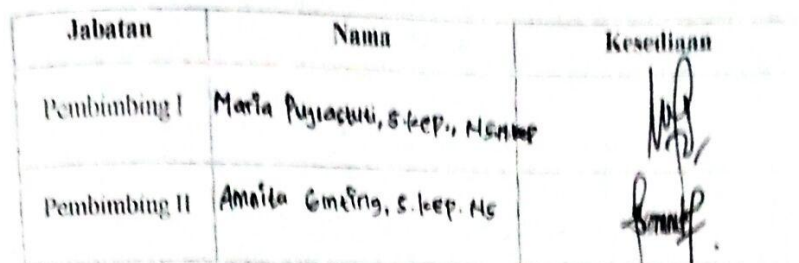 Jabatan Nama Kesediaan
Pembimbing I Maria Pujiastuti, S.kep., Ns.M.kep
Pembimbing II Amnita Ginting, S.kep. Ns